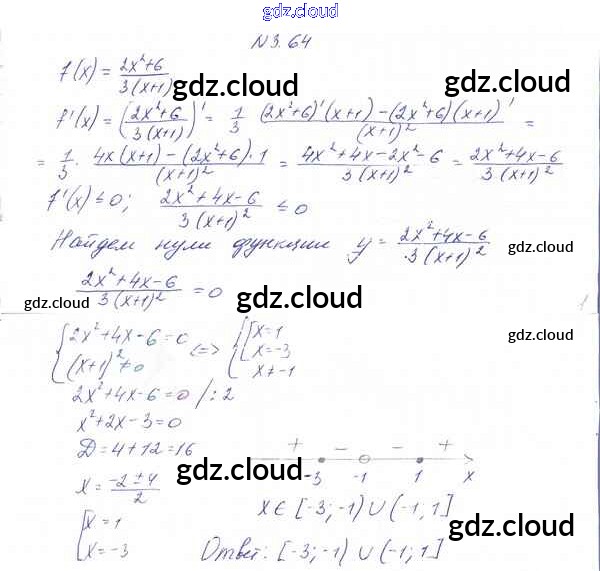 gdz.cloud
N 3.64
f(x) = (2x²+6)/(3(x+1)) gdz.cloud gdz.cloud
f'(x) = ((2x²+6)/(3(x+1)))' = 1/3 ((2x²+6)'(x+1) - (2x²+6)(x+1)')/(x+1)² =
= 1/3 · (4x(x+1) - (2x²+6)·1)/(x+1)² = (4x²+4x-2x²-6)/(3(x+1)²) = (2x²+4x-6)/(3(x+1)²)
f'(x) ≤ 0; (2x²+4x-6)/(3(x+1)²) ≤ 0
Найдем нули функции y = (2x²+4x-6)/(3(x+1)²) gdz.cloud
(2x²+4x-6)/(3(x+1)²) = 0
gdz.cloud gdz.cloud gdz.cloud
{2x²+4x-6=0 <=> {[x=1
{(x+1)²≠0 [x=-3
x≠-1
gdz.cloud
2x²+4x-6=0 /:2
x²+2x-3=0
D=4+12=16
+ - - +
-3 -1 1 x
x = (-2±4)/2
gdz.cloud
x ∈ [-3;-1) ∪ (-1;1]
[x=1
[x=-3
gdz.cloud
Ответ: [-3;-1) ∪ (-1;1]
gdz.cloud